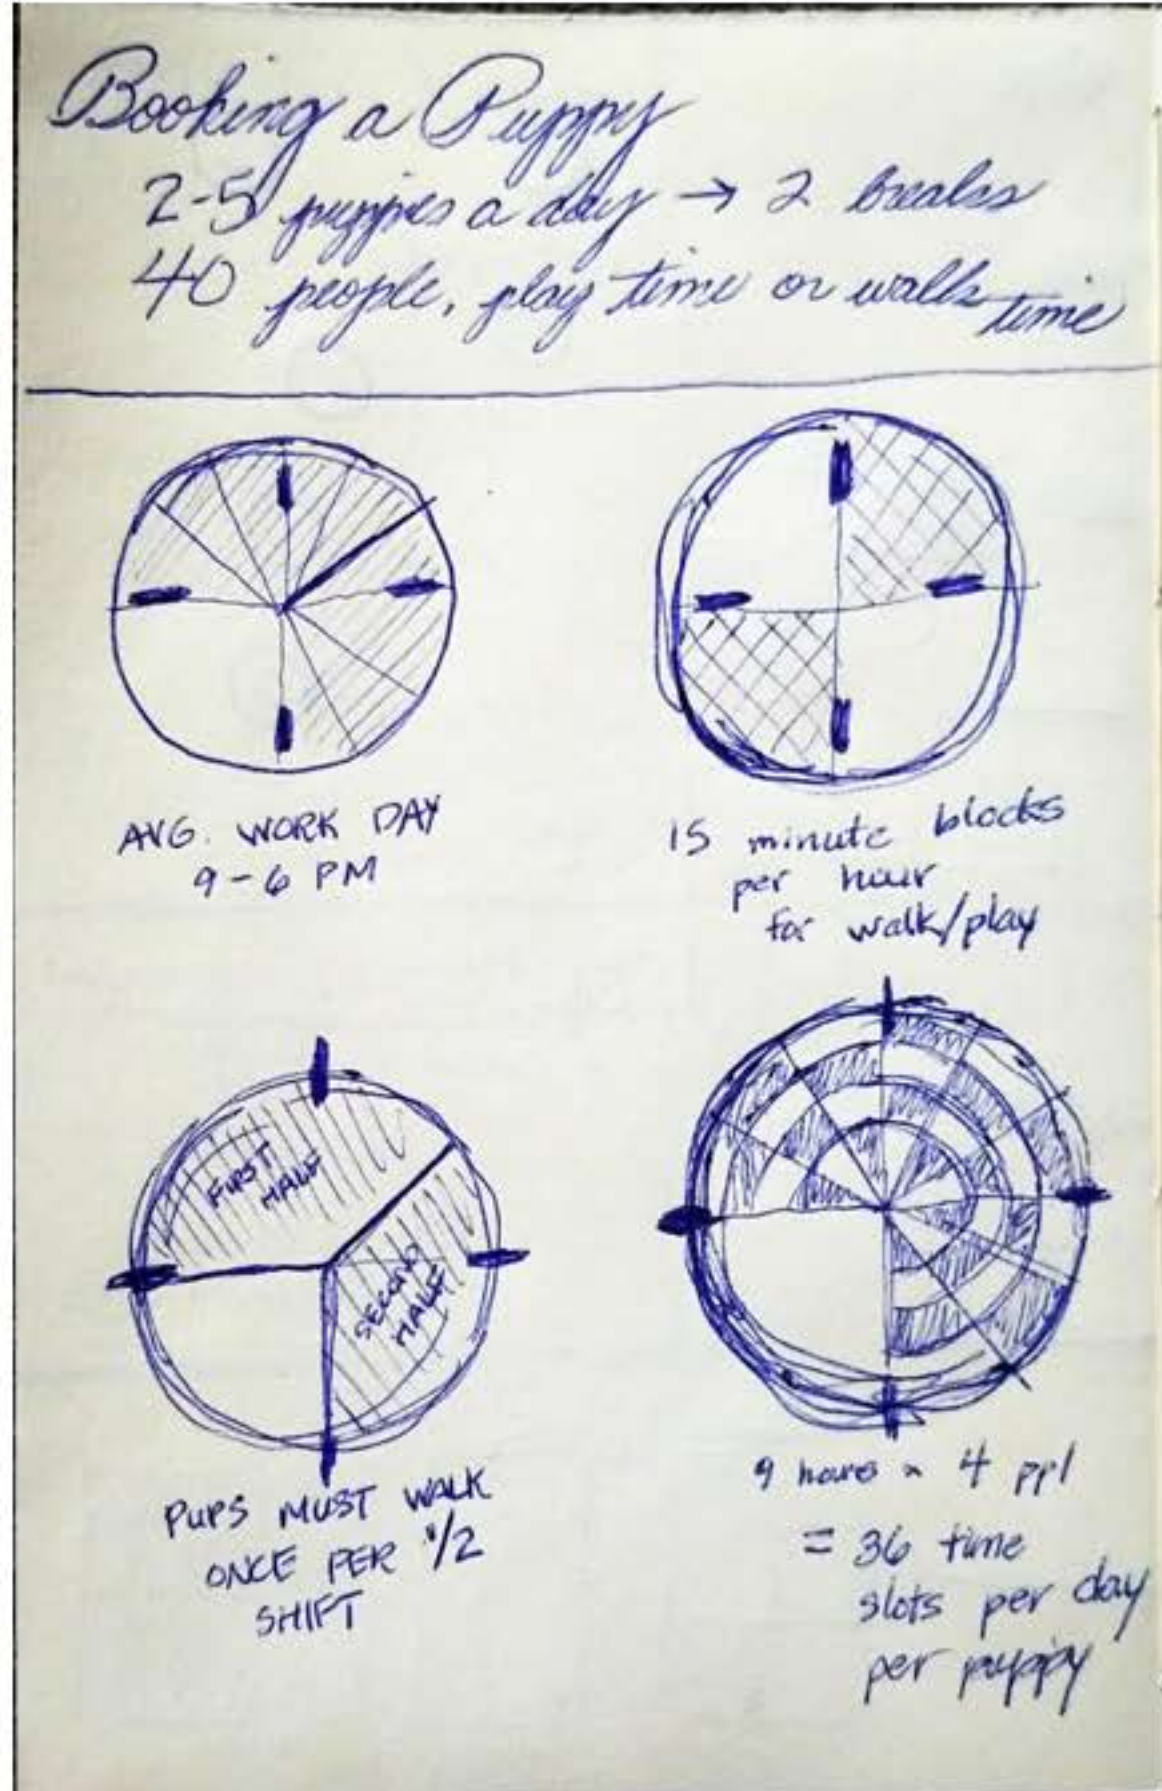 Booking a Puppy
2-5 puppies a day → 2 breaks
40 people, play time or walk time
AVG. WORK DAY
9-6 PM
15 minute blocks
per hour
for walk/play
FIRST
HALF
SECOND
HALF
PUPS MUST WALK
ONCE PER 1/2
SHIFT
9 hours x 4 ppl
= 36 time
slots per day
per puppy